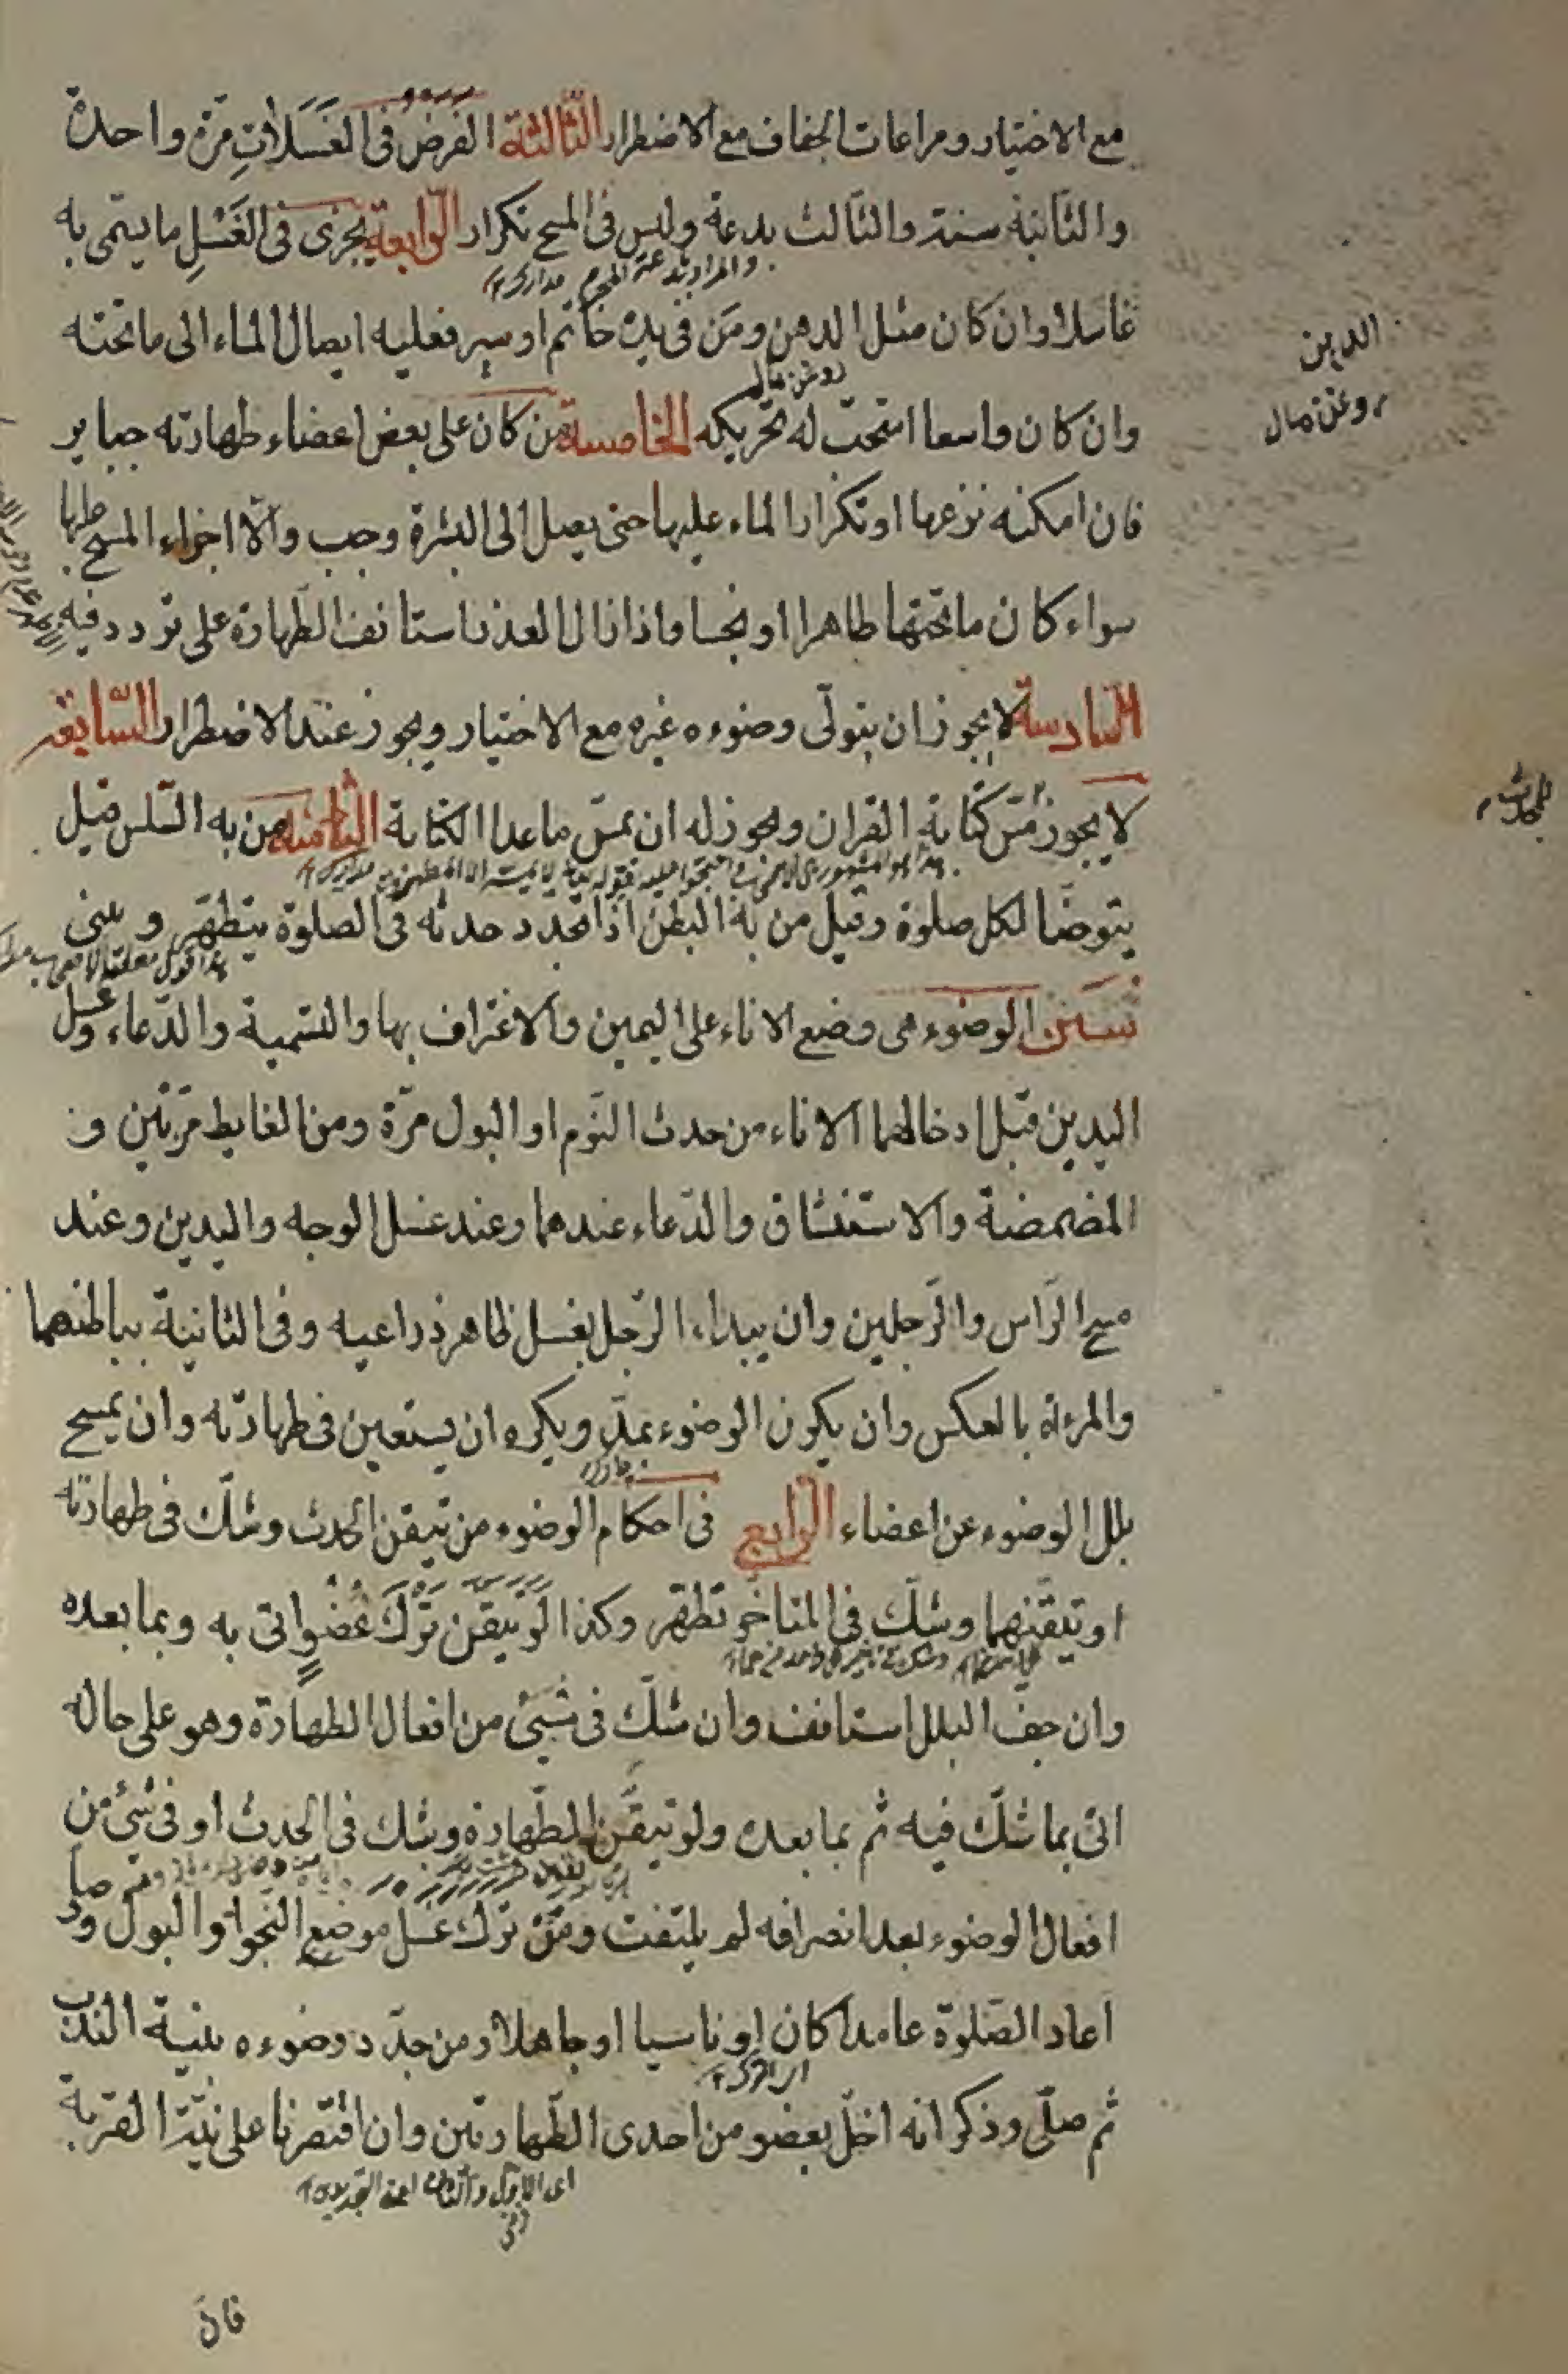 مع الاختيار ومراعات الجفاف مع الاضطرار الثّالثة الفَرض فى الغَسَلاتِ مرّة واحدة
والثّانية سنة والثّالث بدعة وليس فى المسح تكرار الرّابعة يجزى فى الغَسْلِ ما يسمّى به
غاسلا وان كان مثل الدهن ومَن فى يده خاتم او سير فعليه ايصال الماء الى ما تحته
وان كان واسعا استحبّ له تحريكه الخامسة من كان على بعض اعضاء طهارته جباير
فان امكنه نزعها او تكرار الماء عليها حتى يصل الى البشرة وجب والّا اجزاء المسح عليها
سواء كان ما تحتها طاهرا او نجسا واذا زال العذر استانف الطّهارة على تردد فيه
السّادسة لا يجوز ان يتولّى وضوءه غيره مع الاختيار ويجوز عند الاضطرار السّابعة
لا يجوز مسّ كتابة القران ويجوز له ان يمسّ ما عدا الكتابة الثامنة من به السّلس قيل
يتوضّا لكل صلوة وقيل من به البطن اذا تجدد حدثه فى الصلوة يتطهّر و يبنى
سنن الوضوء هى وضع الاناء على اليمين والاغتراف بها والتسمية والدّعاء وغسل
اليدين قبل ادخالهما الاناء من حدث النّوم او البول مرّة ومن الغايط مرّتين و
المضمضة والاستنشاق والدّعاء عندهما وعند غسل الوجه واليدين وعند
مسح الرّاس والرّجلين وان يبداء الرّجل بغسل ظاهر ذراعيه وفى الثانية بباطنهما
والمرءة بالعكس وان يكون الوضوء بمدّ ويكره ان يستعين فى طهارته وان يمسح
بلل الوضوء عن اعضاء الرّابع فى احكام الوضوء من تيقن الحدث وشكّ فى طهارته
او تيقّنهما وشكّ فى المتاخّر تطهّر وكذا لَو تيقّن تَرْكَ عُضْوٍ اتى به وبما بعده
وان جفّ البلل استانف وان شكّ فى شيئ من افعال الطهارة وهو على حاله
اتى بما شكّ فيه ثم بما بعده ولو تيقّن الطّهارة وشك فى الحدث او فى شيئ من
افعال الوضوء بعد انصرافه لم يلتفت ومَن ترك غسل موضع النّجو او البول وصلّى
اعاد الصّلوة عامدا كان او ناسيا او جاهلا ومن جدّد وضوءه بنية الندب
ثم صلّى وذكر انه اخلّ بعضو من احدى الطّهارتين وان اقتصرنا على نيّة القربة
فان
الدهن
روغن مال